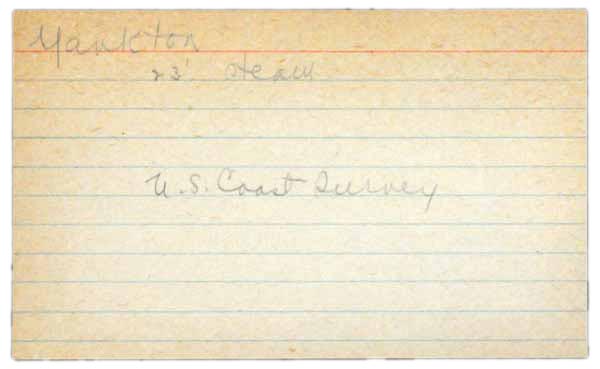 Yankton
23' Steam
U.S. Coast Survey